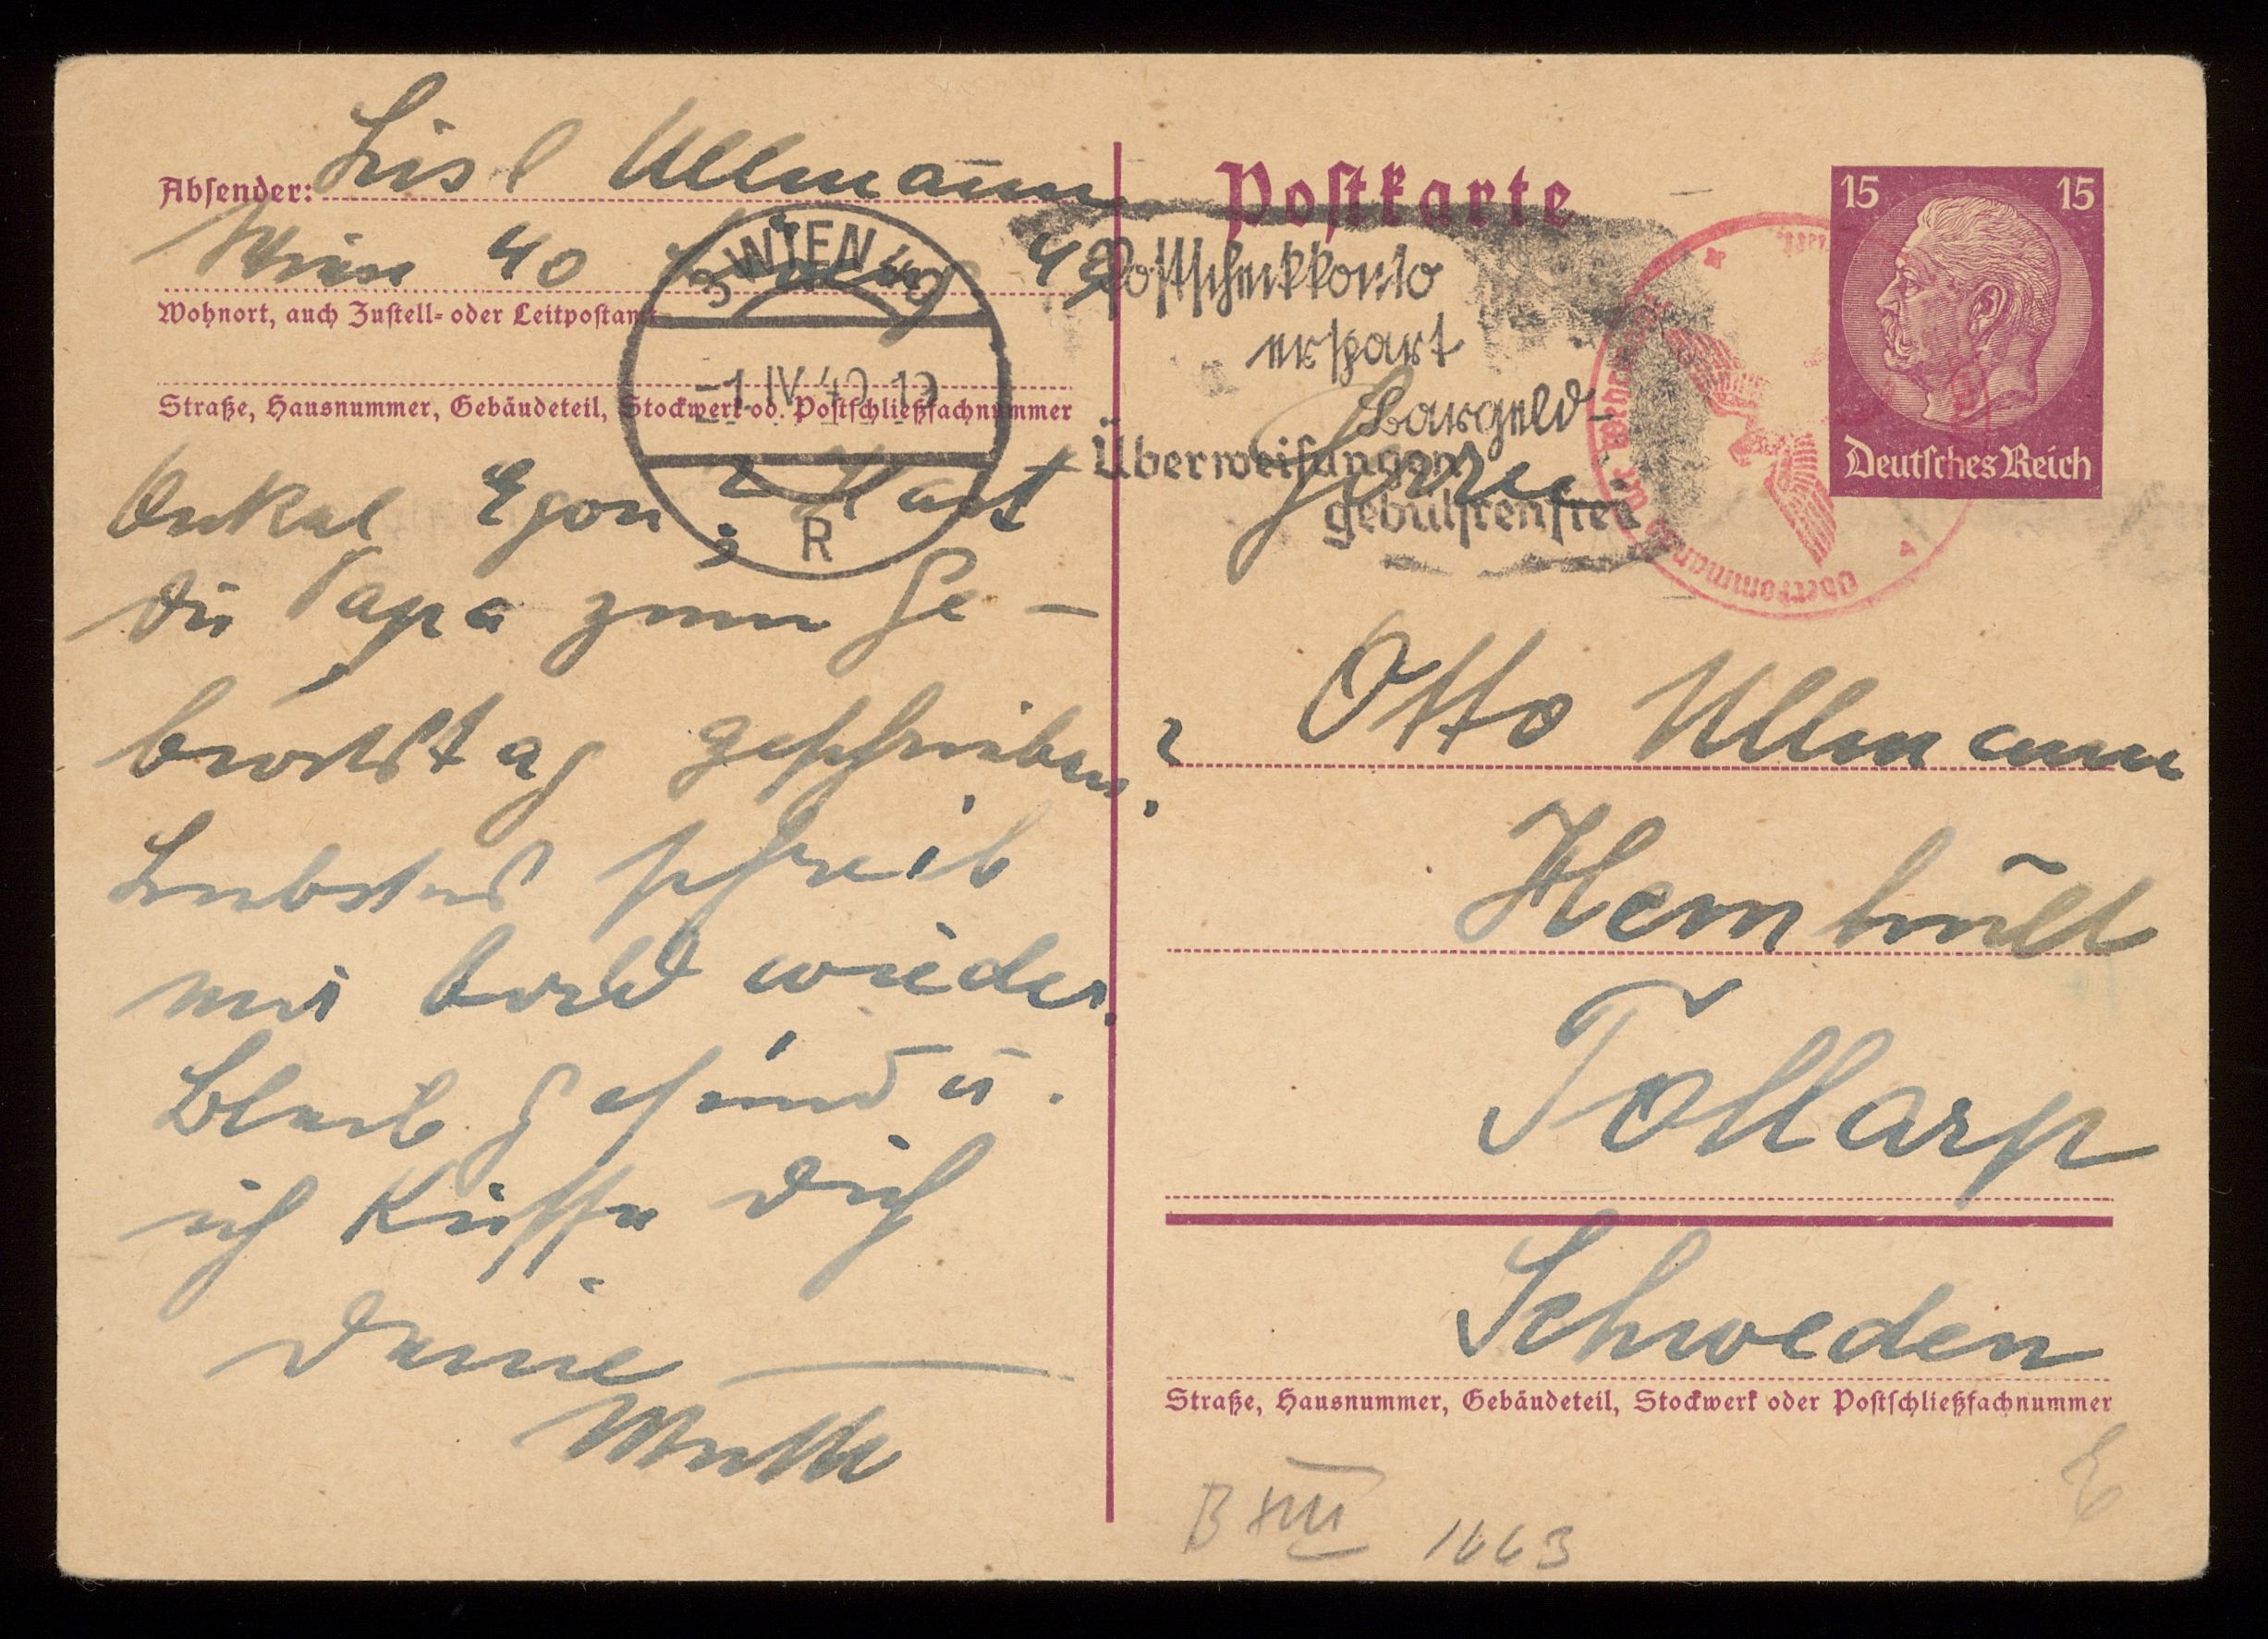 Postkarte
Absender: Lisl Ullmann
Wien 40 49
Wohnort, auch Zustell- oder Leitpostamt
Straße, Hausnummer, Gebäudeteil, Stockwerk od. Postschließfachnummer
WIEN 40
-1.IV.40.19
R
Postscheckkonto
erspart
Bargeld-
Überweisungen
gebührenfrei
15 15
Deutsches Reich
Oberkommando der Wehrmacht
Onkel Egon? Hast
Du Papa zum Ge-
burtstag geschrieben?
Liebstes schreib
mir bald wieder.
Bleib gesund u.
ich küsse Dich
Deine
Mutti
Herrn
Otto Ullmann
Hemhult
Tollarp
Schweden
Straße, Hausnummer, Gebäudeteil, Stockwerk oder Postschließfachnummer
B XIII 1663